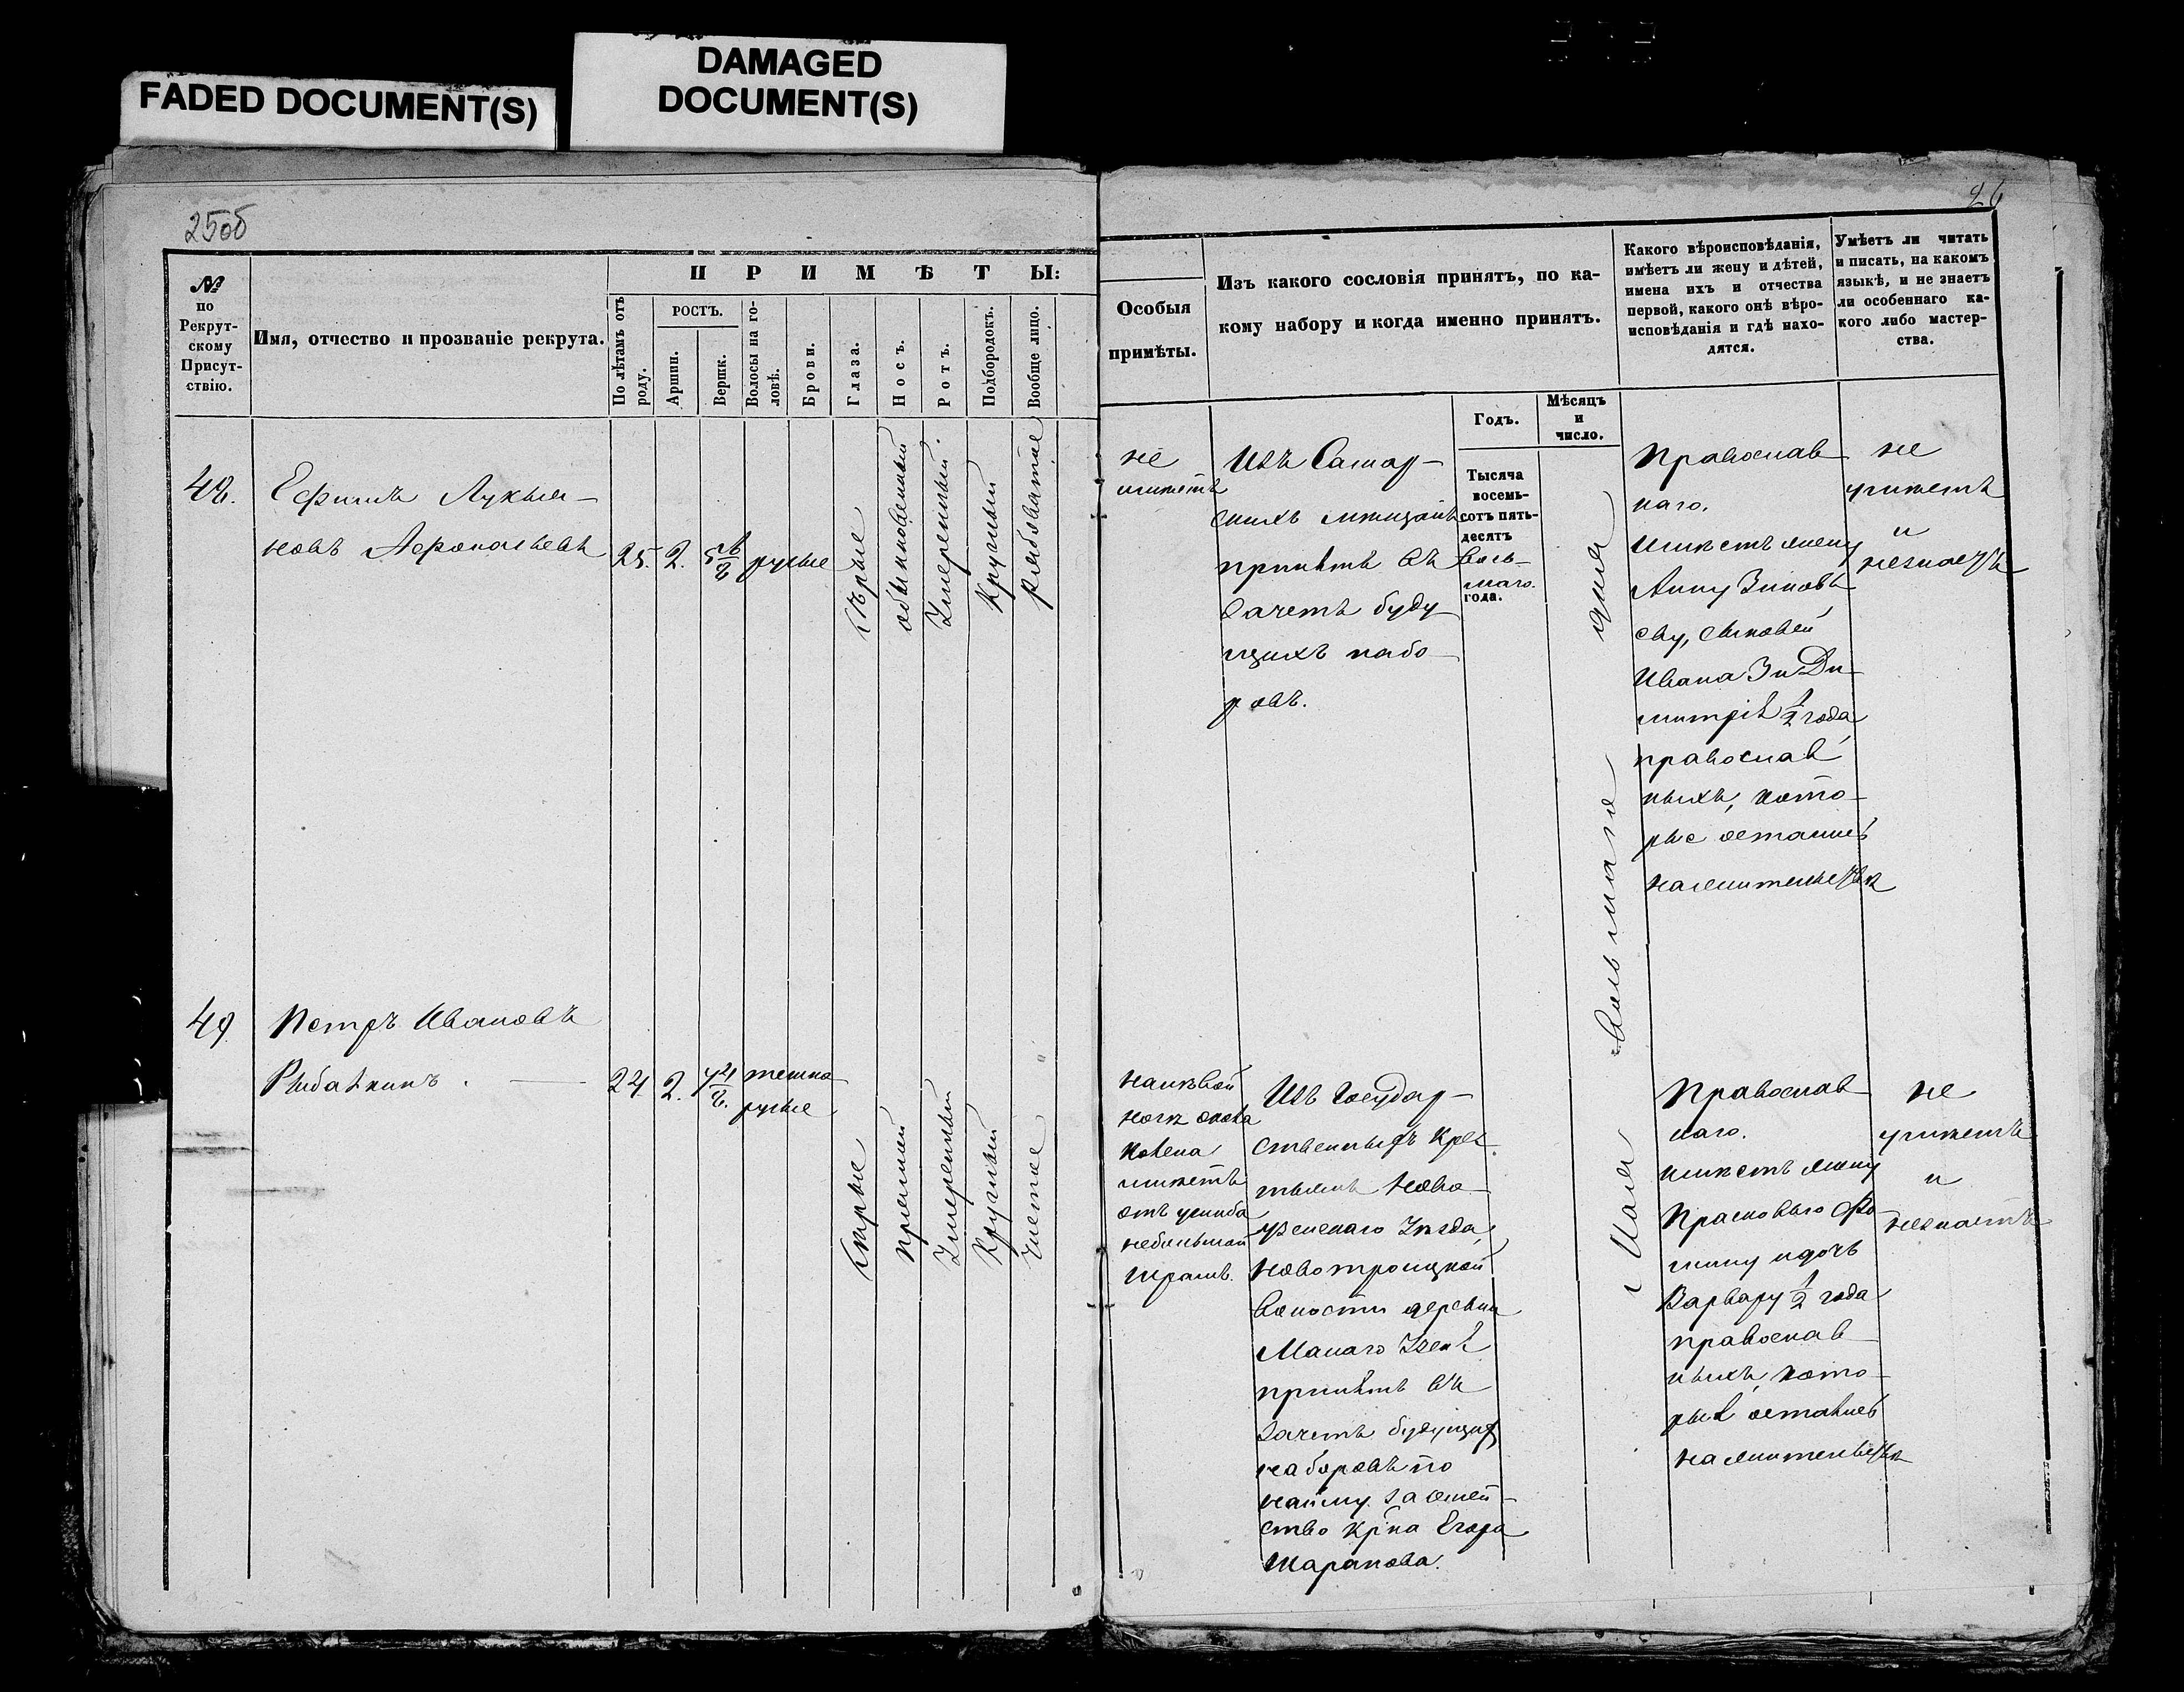 FADED DOCUMENT(S)
DAMAGED
DOCUMENT(S)
25об
26
№
по
Рекрут-
скому
Присут-
ствію.
Имя, отчество и прозваніе рекрута.
ПРИМѢТЫ:
По лѣтамъ отъ
роду.
РОСТЪ.
Аршин.
Вершк.
Волосы на го-
ловѣ.
Брови.
Глаза.
Носъ.
Ротъ.
Подбородокъ.
Вообще лицо.
Особыя
примѣты.
Изъ какого сословія принятъ, по ка-
кому набору и когда именно принятъ.
Какого вѣроисповѣданія,
имѣетъ ли жену и дѣтей,
имена ихъ и отчества
первой, какого онѣ вѣро-
исповѣданія и гдѣ нахо-
дятся.
Умѣетъ ли читать
и писать, на какомъ
языкѣ, и не знаетъ
ли особеннаго ка-
кого либо мастер-
ства.
Годъ.
Мѣсяцъ
и
число.
48.
Ефимъ Лукья-
новъ
25. 2. 5 6/8 русые
сѣрые
обыкновенный
умеренный.
круглый
рябоватые
не
имѣетъ
Изъ Самар-
скихъ мѣщанъ
принятъ въ
зачетъ буду
щихъ набо-
ровъ.
Тысяча
восемь-
сотъ пять-
десятъ
вось-
маго.
года.
Мая восьмаго дня
Православ
наго.
имѣетъ жену
Анну Зиновь
еву, сыновей
Ивана 3 и Ди-
митрія 1/2 года
православ
ныхъ, кото-
рые остались
на жительствѣ
не
умѣетъ
и
незнаетъ
49.
Петръ Ивановъ
Рыбалкинъ.
24. 2. 4 4/8. темно
русые
сѣрые
прямой
умеренный
круглый
чистое
на лѣвой
ногѣ
колена
имѣетъ
отъ ушиба
небольшой
шрамъ.
Изъ Государ-
ственныхъ кресь
тьянъ Ново-
узенскаго Уѣзда
Новотроицкой
волости деревни
Малаго Узеня
принятъ въ
зачетъ будущихъ
наборовъ по
найму за семей-
ство кр̃на Егора
Шарапова.
Православ
наго.
имѣетъ жену
Прасковью Фо-
мину и дочь
Варвару 1/2 года
православ
ныхъ, кото-
рыя остались
на жительствѣ
не
умѣетъ
и
незнаетъ